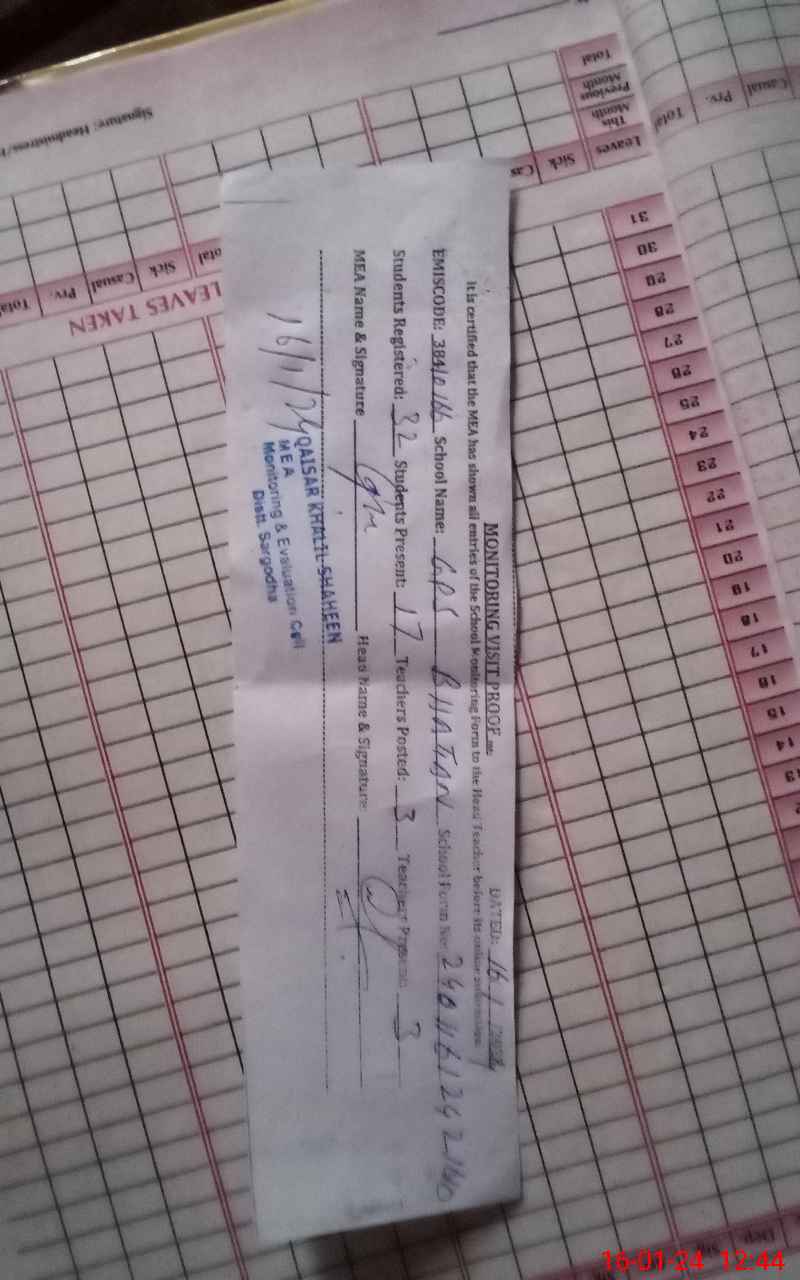 MONITORING VISIT PROOF
DATED: 16 1
It is certified that the MEA has shown all entries of the School Monitoring Form to the Head Teacher before its online submission.
EMISCODE: 38410166 School Name: GPS BHATIAN School Form No: 2401161242160
Students Registered: 32 Students Present: 17 Teachers Posted: 3 Teachers Present: 3
MEA Name & Signature Head Name & Signature:
16/1/24
QAISAR KHALIL SHAHEEN
MEA
Monitoring & Evaluation Cell
Distt. Sargodha
Signature: Headmistress/
Total
Previous Month
This Month
Leaves
Sick
Cas
Total Prv. Casual Sick
LEAVES TAKEN
Total Prv. Casual
31
30
29
28
27
26
25
24
23
22
21
20
19
18
17
16
15
14
13
16-01-24 12:44